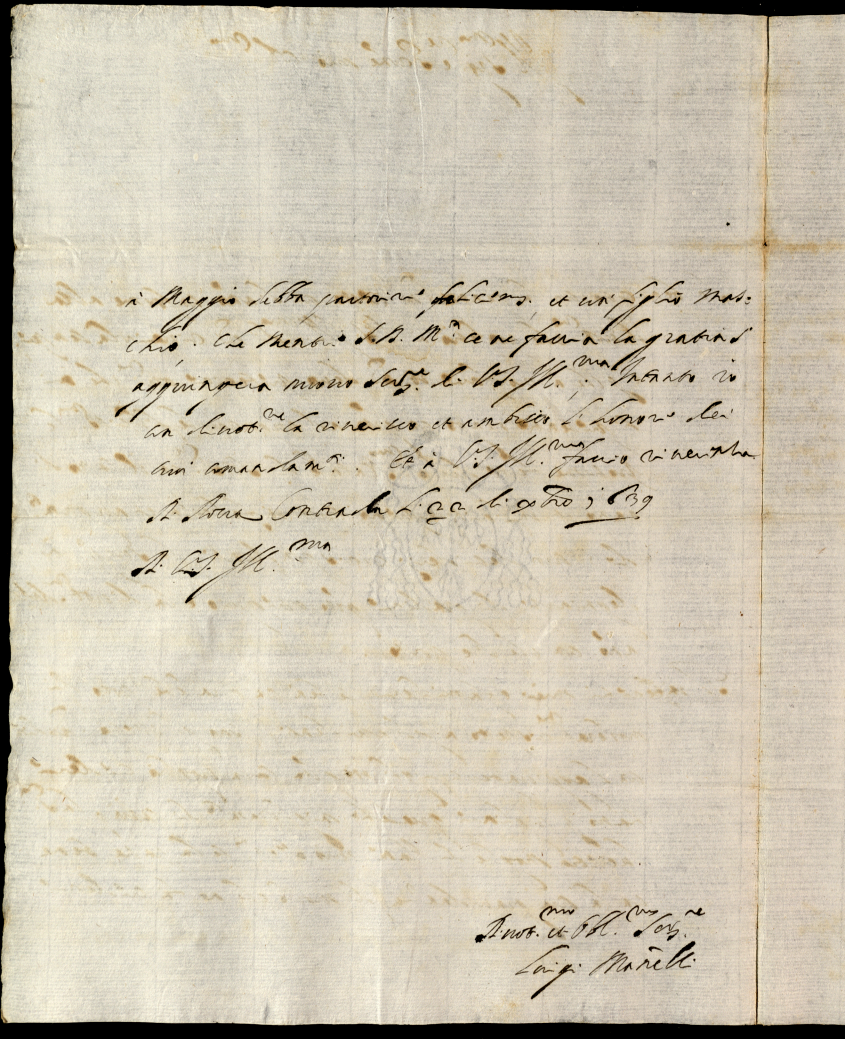 à Maggio debba partorire felicem.te, et un figlio mas:
chio. che mentre S.D. M.tà ce ne faccia la gratia s'
aggiungera nuovo Ser.re di V.S. Ill.ma; Intanto io
con divot.ne la riverisco et ambisco l'honore dei
suoi comandam.ti. Et à V.S. Ill.ma faccio riverenza
Di Rocca Contrada li 22 di Xbro 1639
Di V.S. Ill.ma
Divot.mo et obbl.mo Ser.re
Luigi Manelli